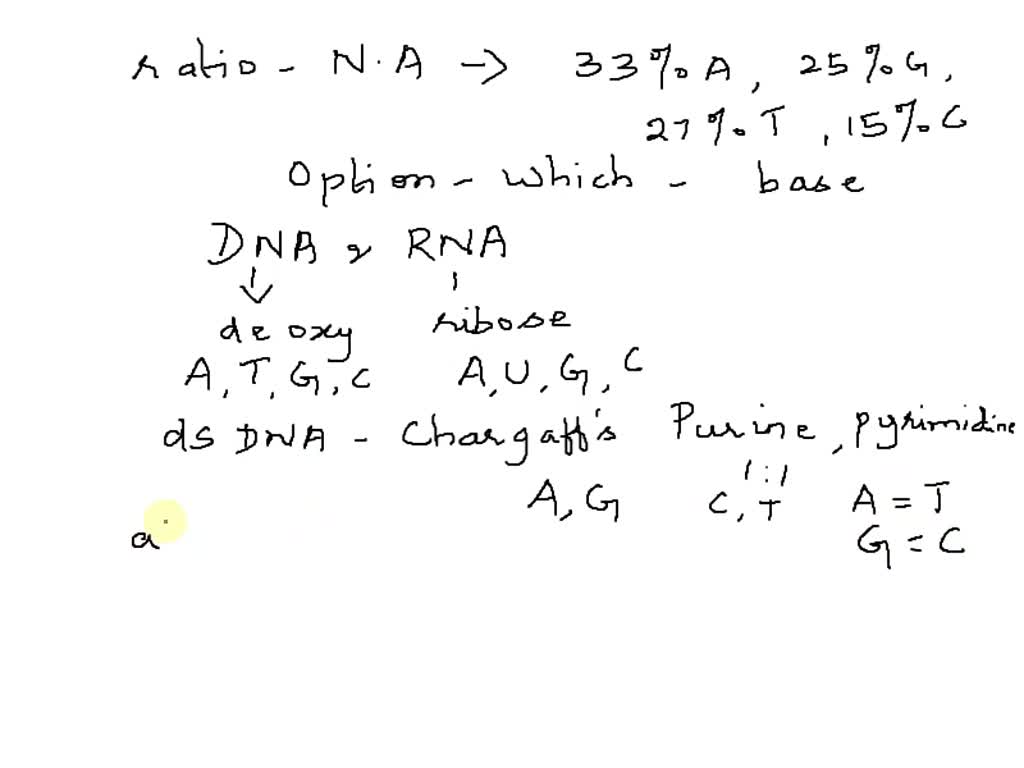 ratio - N.A → 33% A, 25% G,
27% T, 15% C
Option - which - base
DNA & RNA
deoxy ribose
A, T, G, C A, U, G, C
ds DNA - Chargaff's Purine, pyrimidine
1:1
A, G C, T A = T
a G = C